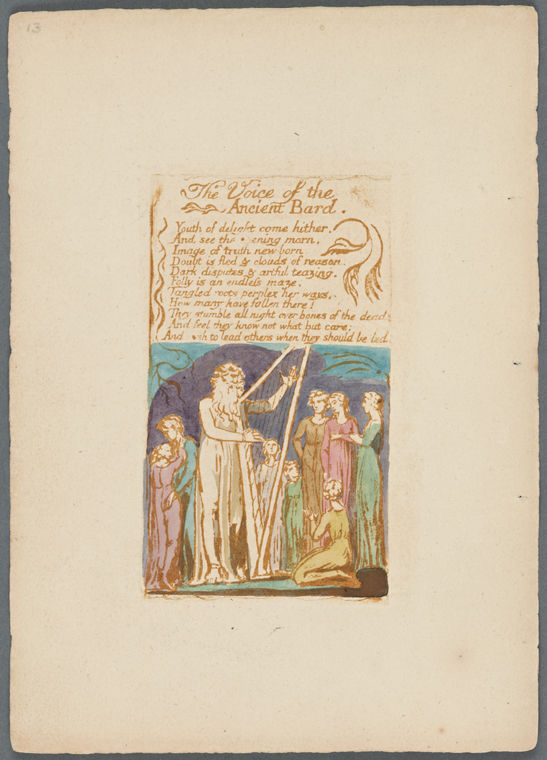 13
The Voice of the
Ancient Bard.
Youth of delight come hither.
And see the ening morn,
Image of truth new born
Doubt is fled & clouds of reason.
Dark disputes & artful teazing.
Folly is an endless maze.
Tangled roots perplex her ways,
How many have fallen there!
They stumble all night over bones of the dead;
And feel they know not what but care;
And sh to lead others when they should be led.